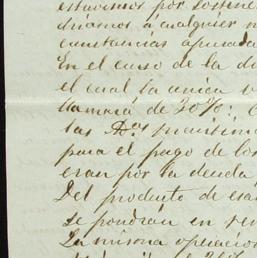 estuvimos por sostene
driamos á cualquier
cunstancias apurada
En el curso de la di
el cual la única
llamará de 20%;
las maritima
para el pago de los
eran por la deuda
Del producto de esa
se pondrán en ve
La misma operacion